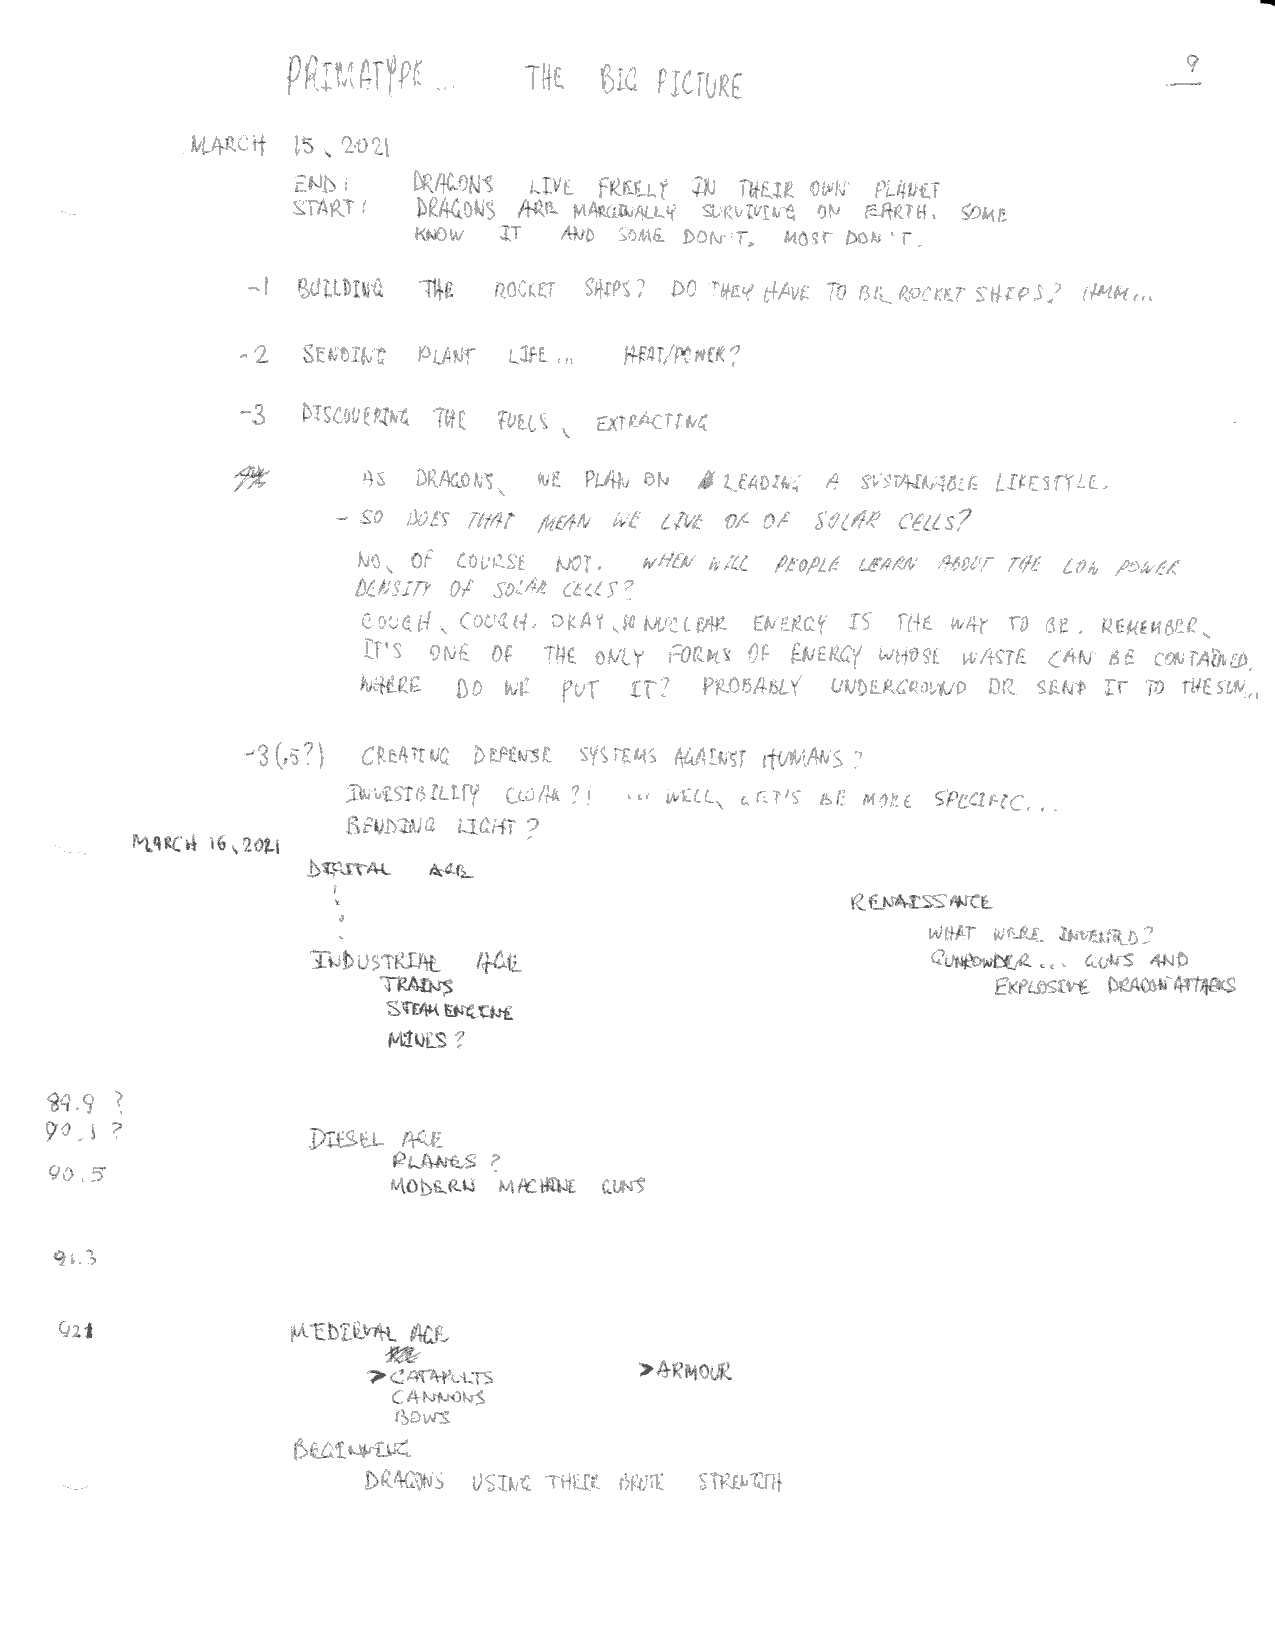 PRIMATYPE... THE BIG PICTURE
9
MARCH 15, 2021
END: DRAGONS LIVE FREELY IN THEIR OWN PLANET
START: DRAGONS ARE MARGINALLY SURVIVING ON EARTH. SOME
KNOW IT AND SOME DON'T. MOST DON'T.
-1 BUILDING THE ROCKET SHIPS? DO THEY HAVE TO BE ROCKET SHIPS? HMM...
-2 SENDING PLANT LIFE... HEAT/POWER?
-3 DISCOVERING THE FUELS, EXTRACTING
AS DRAGONS, WE PLAN ON LEADING A SUSTAINABLE LIFESTYLE.
- SO DOES THAT MEAN WE LIVE OF OF SOLAR CELLS?
NO, OF COURSE NOT. WHEN WILL PEOPLE LEARN ABOUT THE LOW POWER
DENSITY OF SOLAR CELLS?
COUGH, COUGH. OKAY, SO NUCLEAR ENERGY IS THE WAY TO BE. REMEMBER,
IT'S ONE OF THE ONLY FORMS OF ENERGY WHOSE WASTE CAN BE CONTAINED.
WHERE DO WE PUT IT? PROBABLY UNDERGROUND OR SEND IT TO THE SUN...
-3(.5?) CREATING DEFENSE SYSTEMS AGAINST HUMANS?
INVESIBILITY CLOAK?! ... WELL, LET'S BE MORE SPECIFIC...
BENDING LIGHT?
MARCH 16, 2021
DIGITAL AGE
RENAISSANCE
WHAT WERE INVENTED?
GUNPOWDER... GUNS AND
EXPLOSIVE DRAGON ATTACKS
INDUSTRIAL AGE
TRAINS
STEAM ENGINE
MINES?
89.9 ?
90.1 ?
DIESEL AGE
PLANES?
90.5
MODERN MACHINE GUNS
91.3
921
MEDIEVAL AGE
>CATAPULTS >ARMOUR
CANNONS
BOWS
BEGINNING
DRAGONS USING THEIR BRUTE STRENGTH